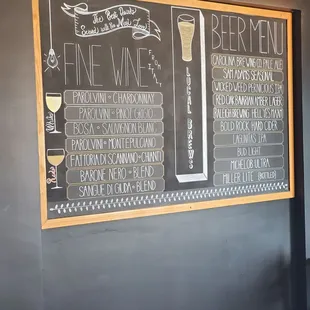 The Best Drinks
Served with the Most Love!
FINE WINE
FROM ITALY
White
PAROLVINI - CHARDONNAY
PAROLVINI - PINOT GRIGIO
BOSA - SAUVIGNON BLANC
Red
PAROLVINI - MONTEPULCIANO
FATTORIA DI SCANNANO - CHIANTI
BARONE NERO - BLEND
SANGUE DI GIUDA - BLEND
LOCAL BREWS
BEER MENU
CAROLINA BREWING CO. PALE ALE
SAM ADAMS SEASONAL
WICKED WEED PERNICIOUS IPA
RED OAK BAVARIAN AMBER LAGER
RALEIGH BREWING HELL YES MA'AM
BOLD ROCK HARD CIDER
LAGUNITAS IPA
BUD LIGHT
MICHELOB ULTRA
MILLER LITE (BOTTLED)